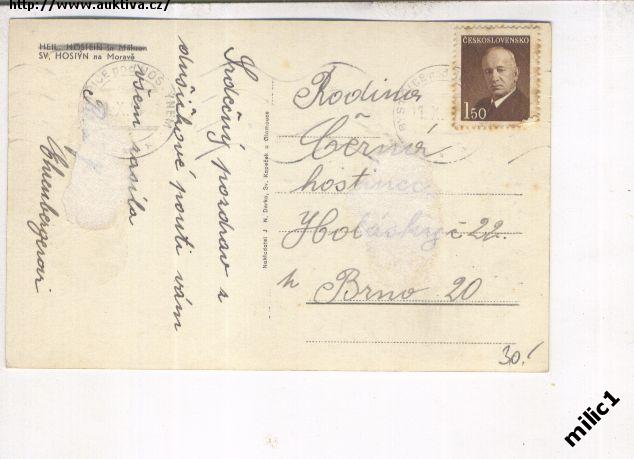 http://www.auktiva.cz/
HEIL. HOSTEIN in Mähren
SV. HOSTÝN na Moravě
Srdečný pozdrav s
dušičkové pouti vám
všem zasílá
Ehrenbergerovi
Nakladatel J. N. Derka, Sv. Kopeček u Olomouce
ČESKOSLOVENSKO
1.50
Rodina
Černá
hostinec
Holásky č 22.
Brno 20
30.-
milic1